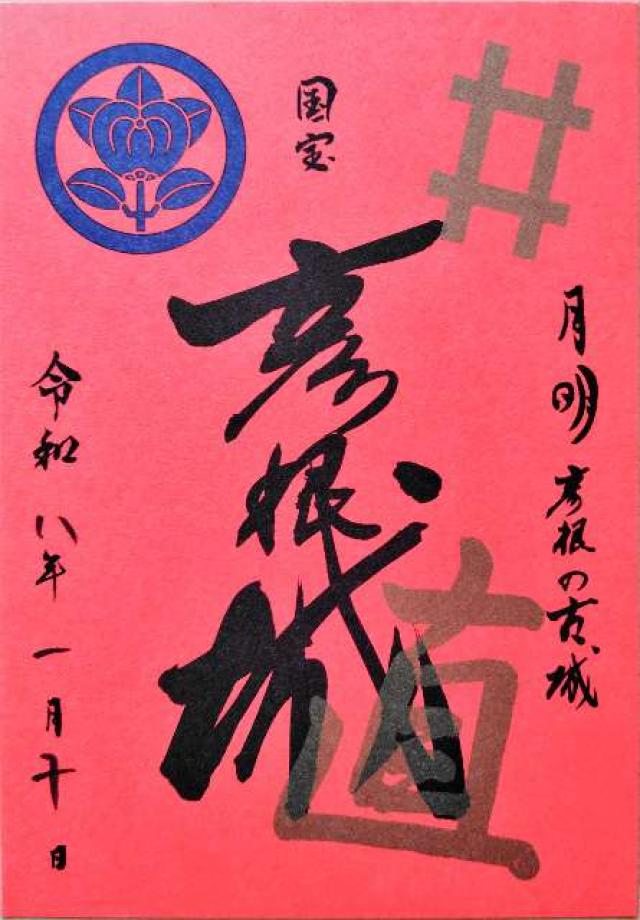 月明彦根の古城
国宝
彦根城
井
直
令和八年一月十日